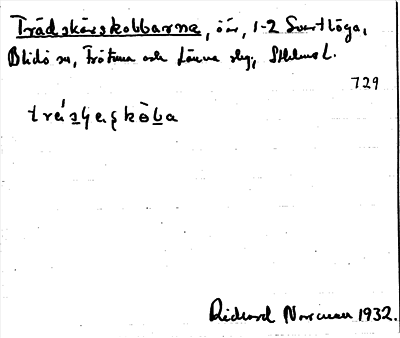 Trädskärskobbarna, öar, 1-2 Svartlöga,
Blidö sn, Frötuna och Länna skg, Sthlms l.
729
Richard Norrman 1932.